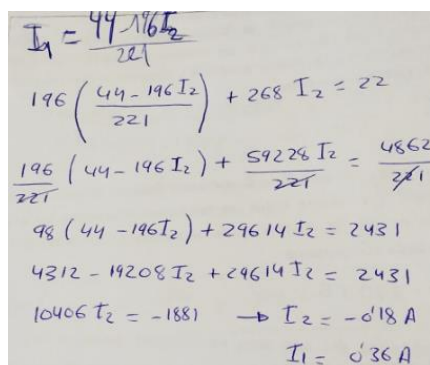 I₁ = (44-196I₂)/221
196 ( (44-196I₂)/221 ) + 268 I₂ = 22
196/221 (44-196I₂) + 59228I₂/221 = 4862/221
98(44-196I₂) + 29614I₂ = 2431
4312 - 19208I₂ + 29614I₂ = 2431
10406I₂ = -1881 → I₂ = -0'18 A
I₁ = 0'36 A